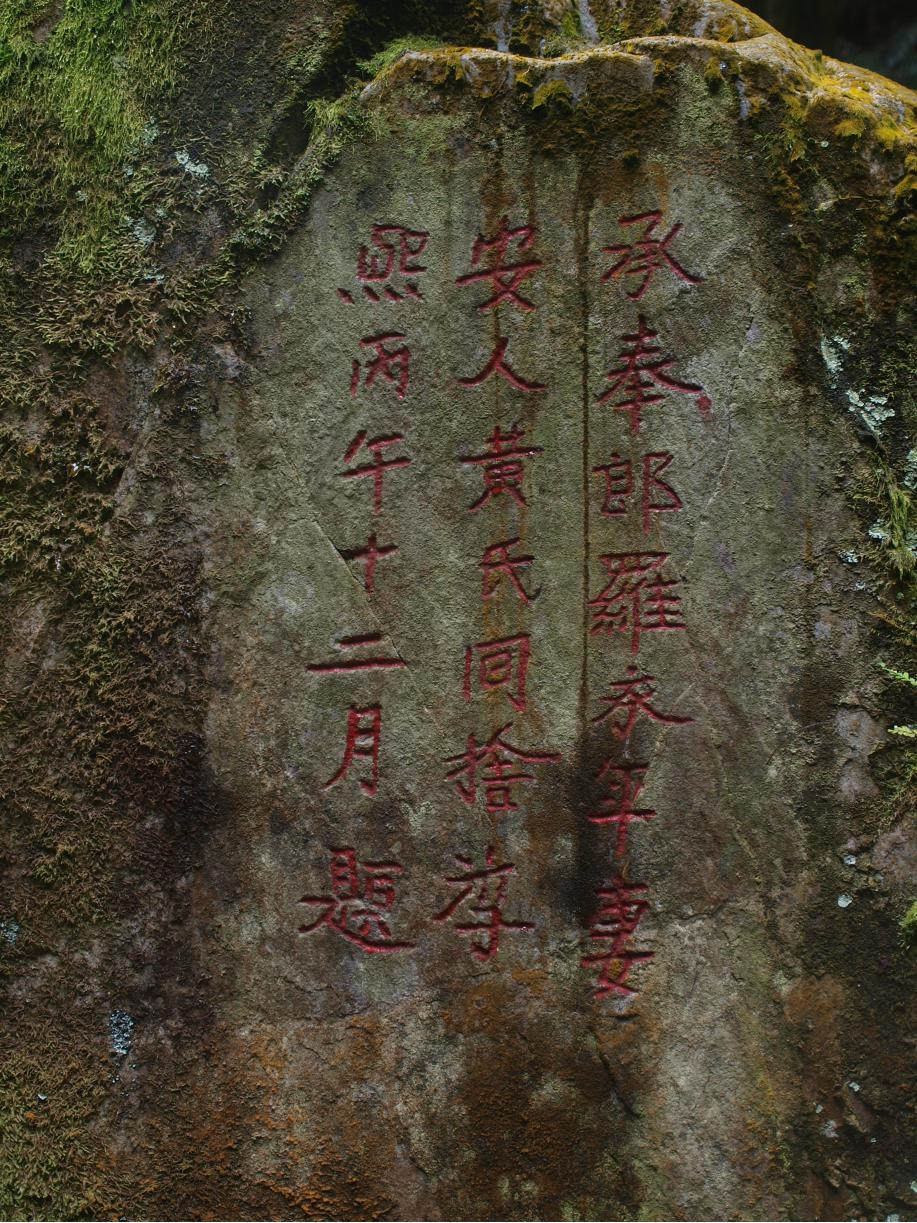 承奉郎羅永年妻
安人黄氏同捨淳
熙丙午十二月題